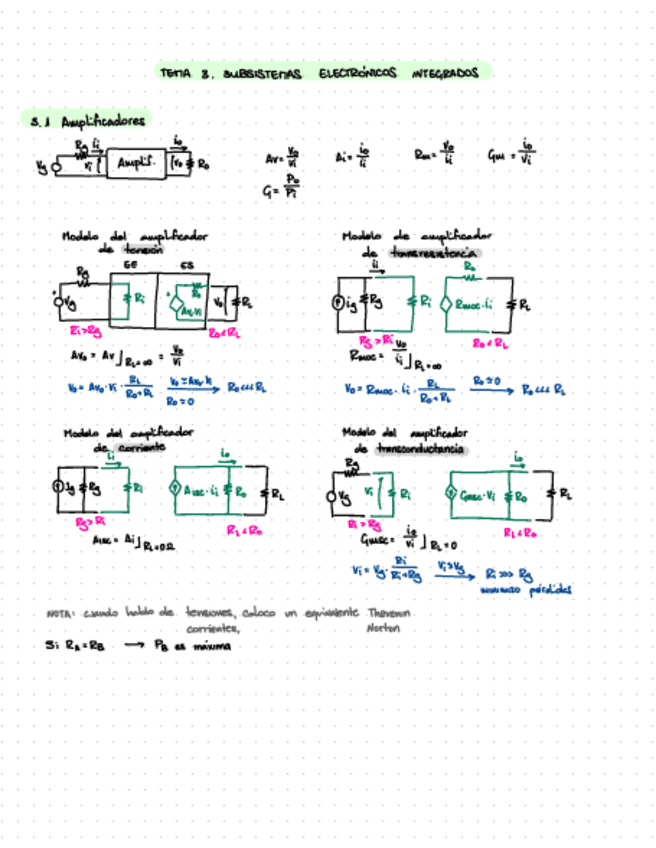 TEMA 3. SUBSISTEMAS ELECTRÓNICOS INTEGRADOS
3.1 Amplificadores
Rg ii io
Vg Vi Amplif. Vo Ro
Av = Vo/Vi Ai = io/ii Rm = Vo/ii Gm = io/Vi
G = Po/Pi
Modelo del amplificador
de tensión
EE ES
Rg
Vg Ri Ro Av·Vi Vo RL
Ri>Rg Ro<RL
Avo = Av]RL=∞ = Vo/Vi
Vo = Avo·Vi · RL/(Ro+RL) Vo=Avo·Vi → Ro≃0 Ro<<<RL
Modelo de amplificador
de transresistencia
ii Ro
ig Rg Ri Rmoc·ii RL
Rg>Ri Ro<RL
Rmoc = Vo/ii]RL=∞
Vo = Rmoc·ii · RL/(Ro+RL) Ro≃0 → Ro<<<RL
Modelo del amplificador
de corriente
ii io
Ig Rg Ri Aisc·ii Ro RL
Rg>Ri RL<Ro
Aisc = Ai]RL=0Ω
Modelo del amplificador
de transconductancia
Rg io
Vg Vi Ri Gmsc·Vi Ro RL
Ri>Rg RL<Ro
Gmsc = io/Vi]RL=0
Vi = Vg · Ri/(Ri+Rg) Vi≃Vg → Ri>>>Rg
mínimas pérdidas
NOTA: cuando hablo de tensiones, coloco un equivalente Thevenin
corrientes, Norton
Si RA=RB → PB es máxima